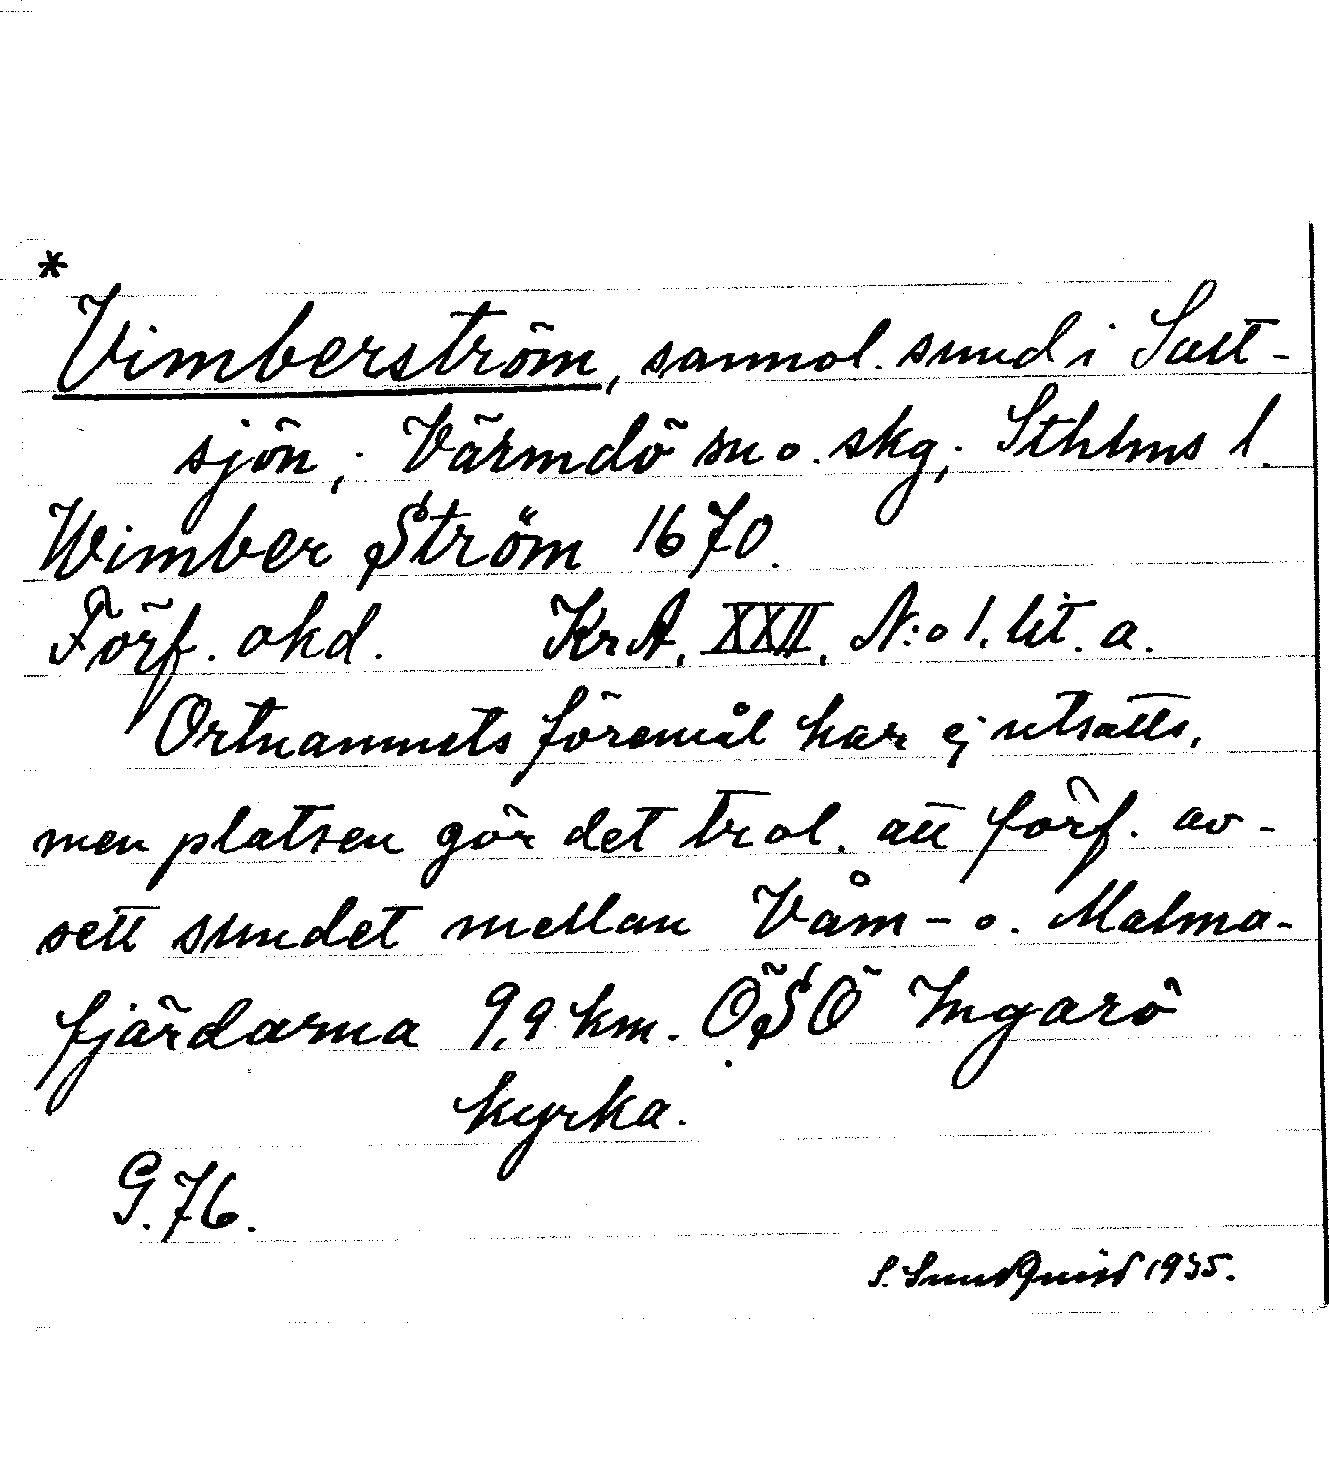 *
Vimberström, sannol. sund i Salt-
sjön; Värmdö sn o. skg; Sthlms l.
Wimber Ström 1670.
Förf. okd. KrA, XXII, N:o 1. lit. a.
Ortnamnets föremål har ej utsatts,
men platsen gör det trol. att förf. av-
sett sundet mellan Våm- o. Malma-
fjärdarna 9,9 km. ÖSÖ Ingarö
kyrka.
G. 76.
S. Sundquist 1935.